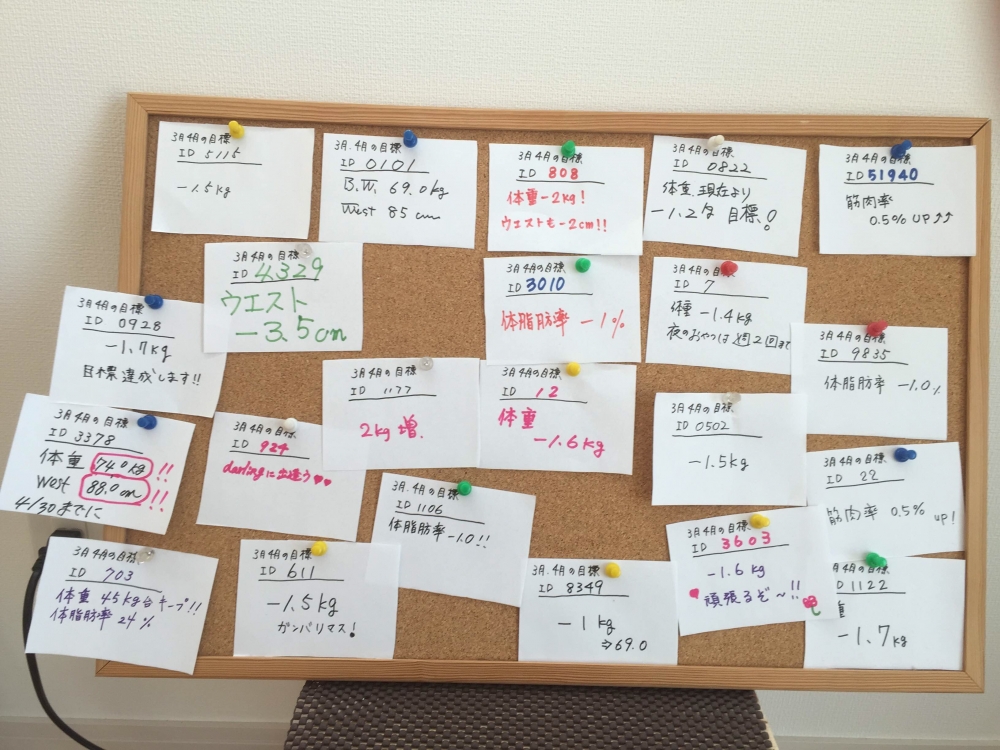 3月4月の目標
ID 5115
-1.5kg
3月.4月の目標
ID 0101
B.W. 69.0kg
West 85cm
3月4月の目標
ID 808
体重-2kg!
ウエストも-2cm!!
3月4月の目標
ID 0822
体重.現在より
-1.2を目標!
3月4月の目標
ID 51940
筋肉率
0.5% UP↑↑
3月4月の目標
ID 4329
ウエスト
-3.5cm
3月4月の目標
ID 3010
体脂肪率 -1%
3月4月の目標
ID 7
体重 -1.4kg
夜のおやつは週2回まで
3月4月の目標
ID 0928
-1.7kg
目標達成します!!
3月4月の目標
ID 9835
体脂肪率 -1.0%
3月4月の目標
ID 1177
2kg増.
3月4月の目標
ID 12
体重
-1.6kg
3月4月の目標
ID 0502
-1.5kg
3月4月の目標
ID 3378
体重 74.0kg!!
West 88.0cm!!
4/30までに
3月4月の目標
ID 924
darlingに出逢う♥♥
3月4月の目標
ID 1106
体脂肪率-1.0!!
3月4月の目標
ID 22
筋肉率 0.5% up!
3月4月の目標
ID 703
体重 45kg台キープ!!
体脂肪率 24%
3月4月の目標
ID 611
-1.5kg
ガンバリマス!
3月.4月の目標
ID 8349
-1kg
⇒69.0
3月4月の目標
ID 3603
-1.6kg
♥頑張るぞ〜!!
月4月の目標
ID 1122
重
-1.7kg